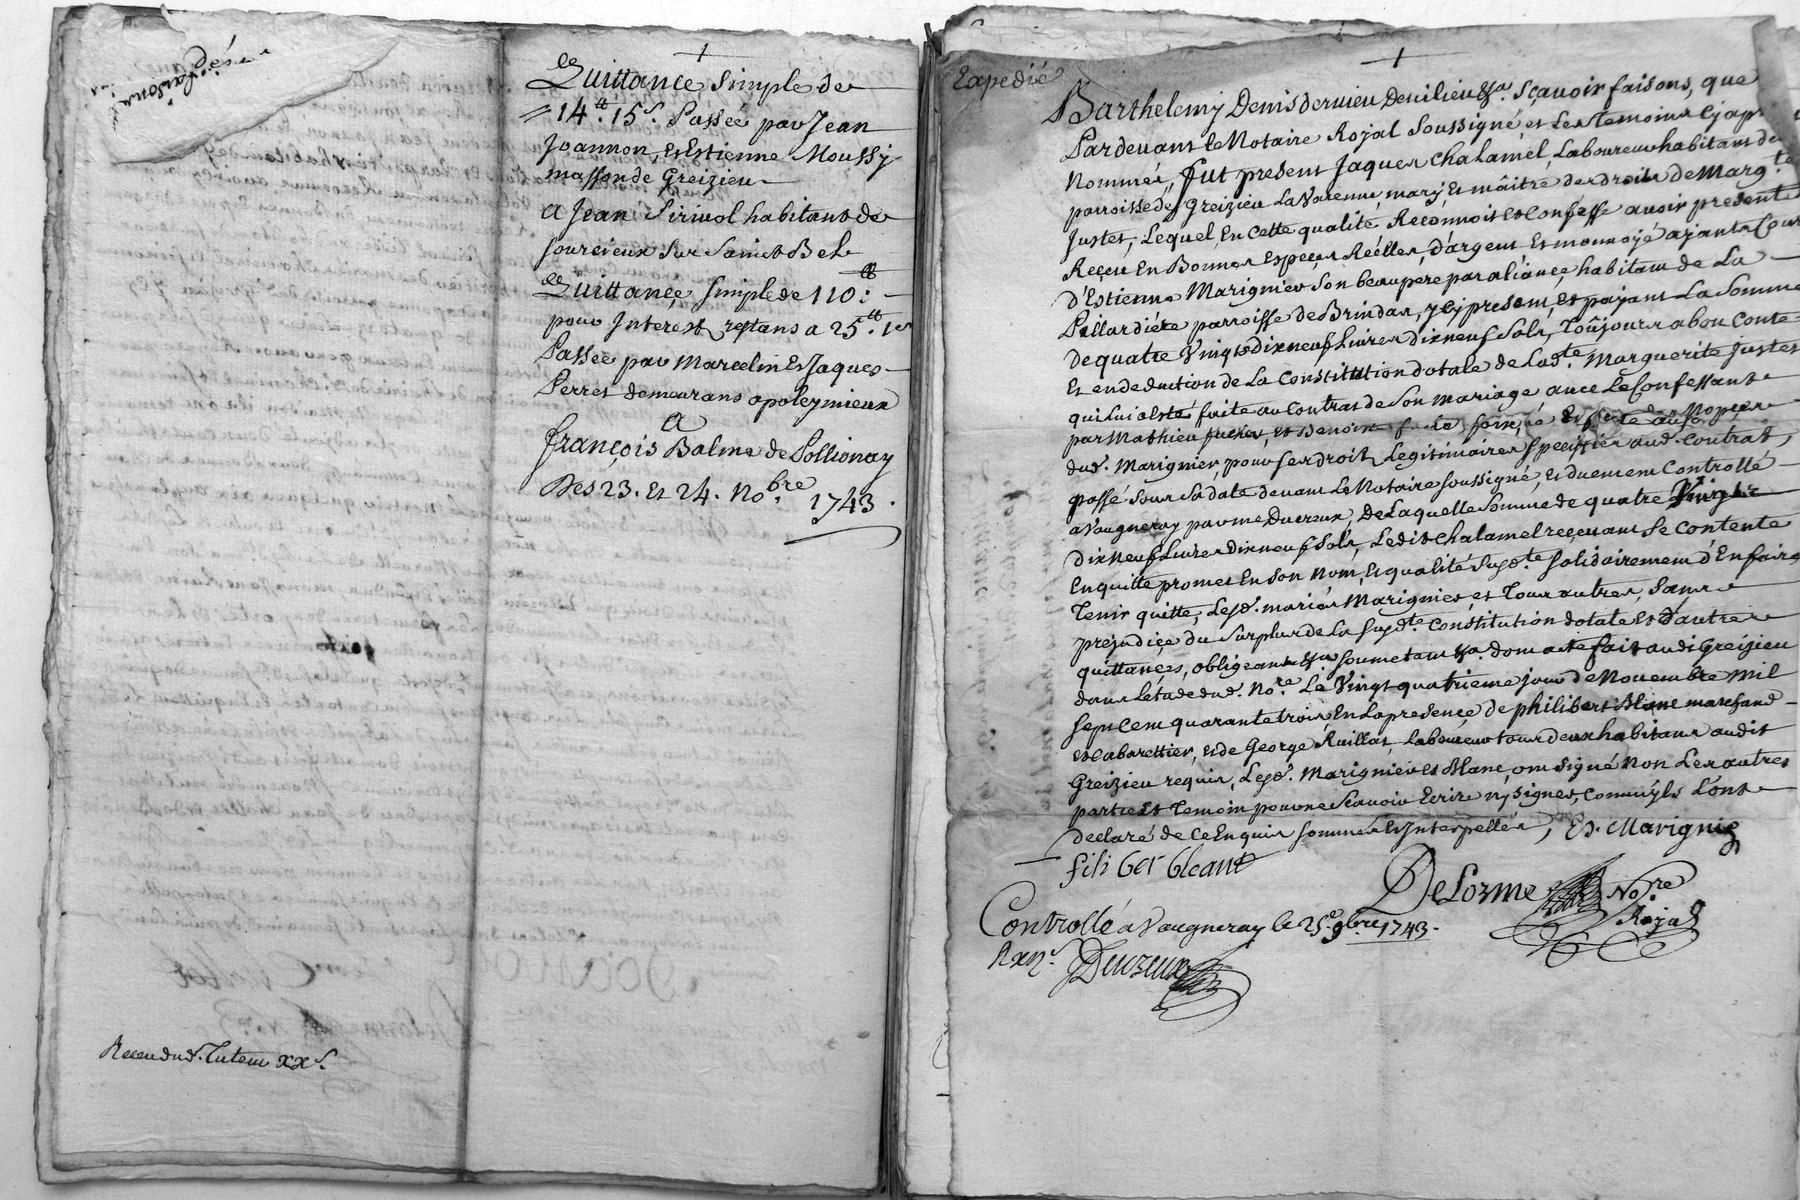 Quittance simple de
14tt. 15s. Passée par Jean
Joannon, et Estienne Moussy
masson de Greizieu
a Jean Pirivol habitant de
sourcieux sur Sainct Bel
Quittançe simple de 110:tt
pour Interest restans a 25tt. 1s
Passée par Marcelin et Jaques
Perret demeurans a poleymieux
A
françois Balme de Pollionay
Des 23. et 24. Nobre. 1743.
Receu dud. Tuteur xxs.
Expedié
Barthelemy Denis dervieu de vilieu &a. sçavoir faisons, que
Pardevant le Notaire Royal soussigné et les temoins cy
Nommés, fut present Jaques Chalamel, Laboureur habitant de
parroisse de Greizieu La Varenne, mary et mâitre des droits de Margte.
Justet, Lequel, En cette qualité Reconnoit et confesse avoir presentement
Reçeu En Bonnes Espeçes Réelles, D'argent et monnoyé ayant Cours
d'Estienne Marignier son beaupere par aliançe, habitant de La
Pillardiére parroisse de Brindas, icy present, et payant La somme
De quatre Vingts Dix neuf Livres Dix neuf Sols, Toûjours a bon Conte
Et en deduction de La Constitution dotale de Ladte. Marguerite Justet
qui Lui a esté faite au Contrat de Son mariage avec Le Confessant
par Mathieu et Benoite
dud. Marignier, pour ses droits Legitimaires specifiés aud. Contrat,
passé sous sa date devant Le Notaire soussigné, et duement Controllé
a Vaugneray par me Ducreux, De Laquelle Somme de quatre Vingts
Dix Neuf Livres Dix neuf Sols, Ledit Chalamel reçevant Se Contente
En quitte promet En son Nom, et qualité susdte. solidairement d'En faire
Tenir quitte, Lesd. mariés Marignier, et Tous autres, Sans
prejudiçe du Surplus de La susdte. Constitution dotale et d'autres
quittançes, obligeant &a soumetant &a. dont acte fait audi Greizieu
dans L'etude dud. Nore. Le Vingt quatrieme jour de Novembre Mil
Sept Cent quarante trois, En La presençe de philibert Blanc marchand
et Cabarettier, et de George Ruillat Laboureur tous deux habitans audit
Greizieu requis, Lesd. Marignier et Blanc, ont signé Non Les autres
parties et Temoin pour ne Scavoir Ecrire ny Signer, Comm'yls L'ont
declaré de Ce Enquis sommés et Interpellés, Es. Marignie
fili ber bleant
Delorme Nore.
Royal
Controllé a Vaugneray le 25e 9bre 1743.
Ducreux